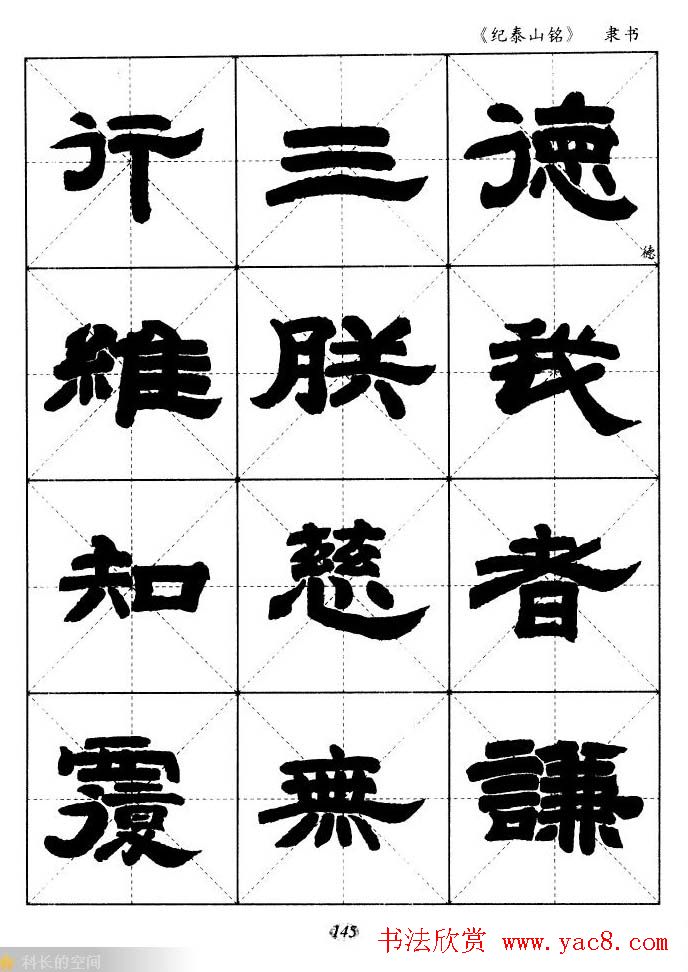 《纪泰山铭》 隶书
行三德
德
維朕我
知慈者
覆無謙
145
书法欣赏 www.yac8.com
科长的空间